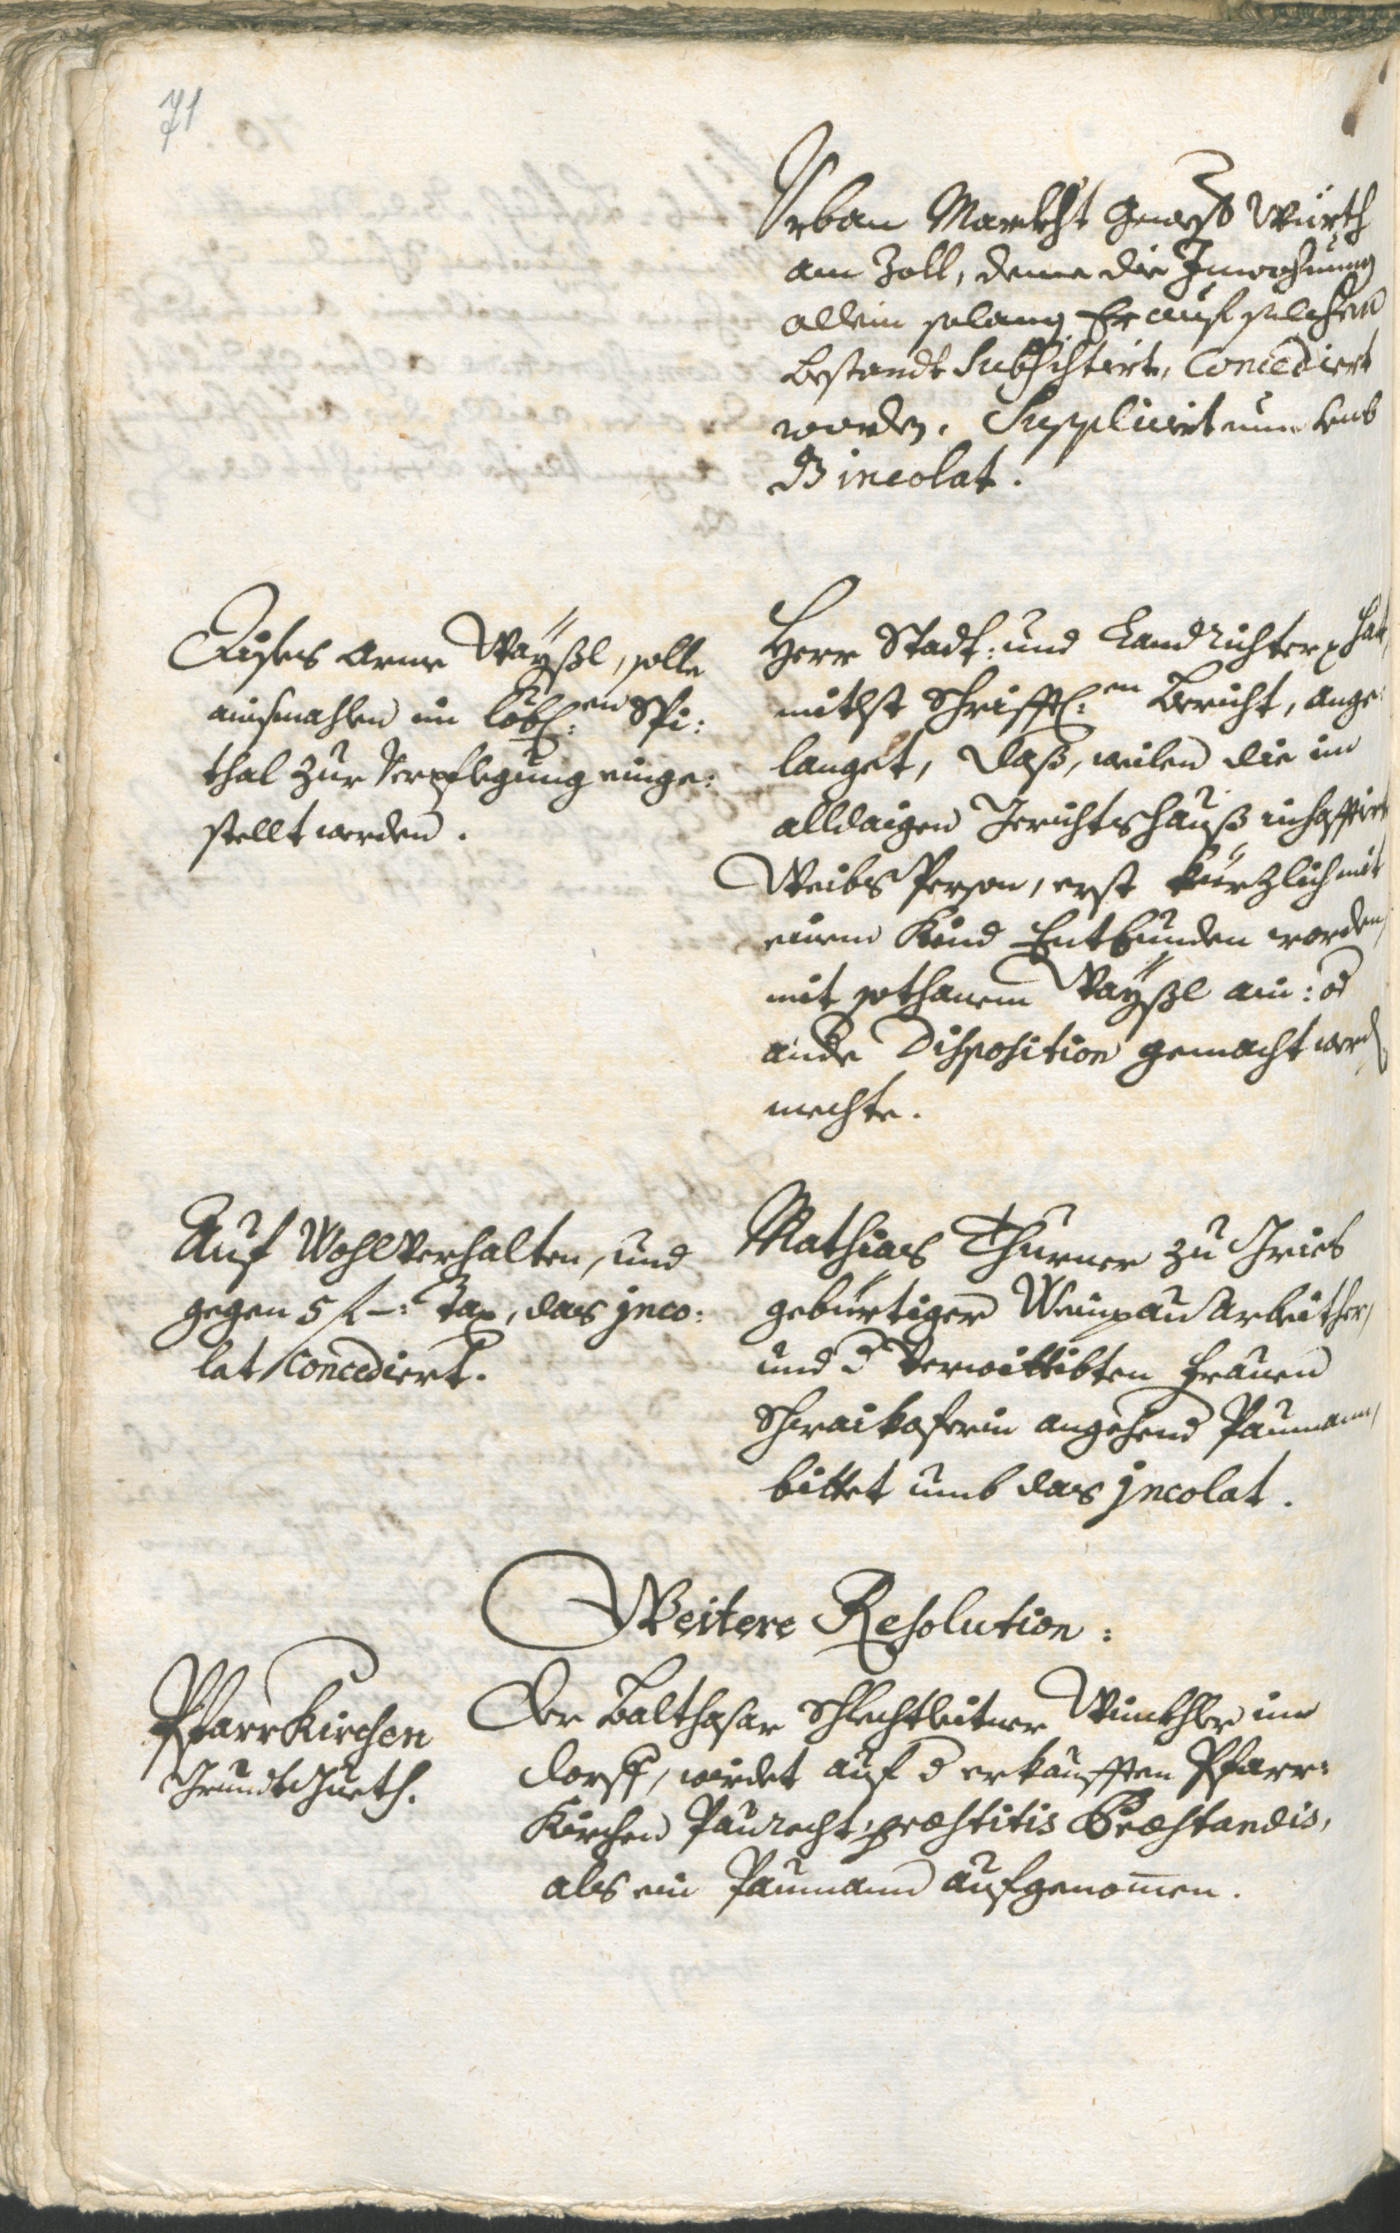 71
Urban Markht gewest Würth
am Zoll, deme die Jnwohnung
allein solang Er auf solchem
bestandt Subsistirt, Concediert
worden. Supplicirt nun umb
dz incolat.
Dises arme Waÿßl, solle
einsmahlen im löbl:en Spi:
thal zur Verpflegung einge:
stellt werden.
Herr Stadt: und Landrichter hat,
mitlst Schrifftl:en Bericht, ange:
langet, daß, weilen die im
alldaigen Gerichtshauß inhaftirte
WeibsPerson, erst kürzlich mit
einem Kind Entbunden worden,
mit sothanem Waÿßl ain: od
ande Disposition gemacht werd
mechte.
Auf Wohlverhalten, und
gegen 5 f –: Tax, das jnco:
lat Concediert.
Mathias Thurner zu Gries
gebürtiger Weinpau Arbeither,
und d Verwittibten Frauen
angehend Paumann,
bittet umb das jncolat.
Weitere Resolution:
PfarrKirchen
Grundt Gueth.
Der Balthasar Schlechtleitner im
dorff, wirdet auf d erkaufften Pfarr:
Kirchen Paurecht, præstitis Præstandis,
als ein Paumann aufgenom̄en.